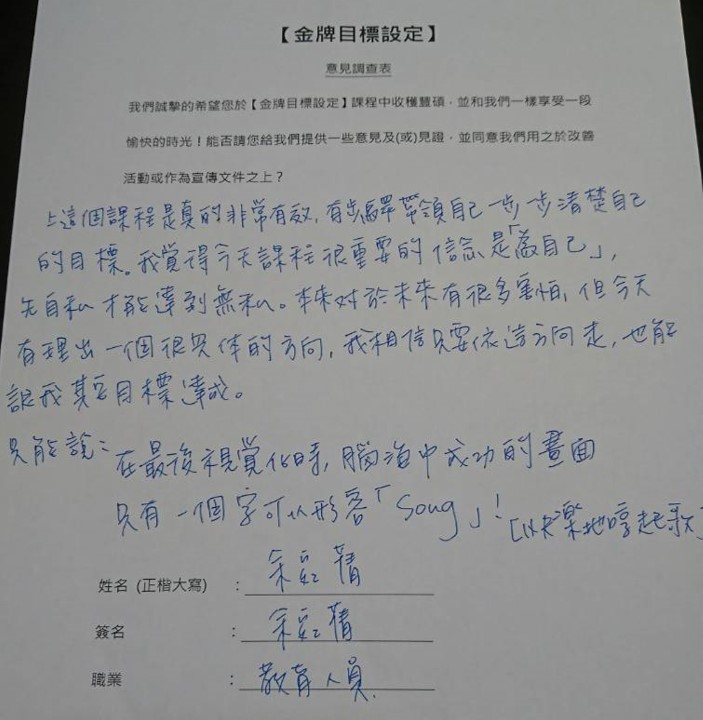 【金牌目標設定】
意見調查表
我們誠摯的希望您於【金牌目標設定】課程中收穫豐碩，並和我們一樣享受一段
愉快的時光！能否請您給我們提供一些意見及(或)見證，並同意我們用之於改善
活動或作為宣傳文件之上？
上這個課程是真的非常有效，有步驟帶領自己一步一步清楚自己
的目標。我覺得今天課程很重要的信念是「為自己」，
先自私才能達到無私。本來對於未來有很多害怕，但今天
有理出一個很具體的方向，我相信只要依這方向走，也能
讓我其它目標達成。
只能說：在最後視覺化時，腦海中成功的畫面
只有一個字可以形容「Song」！[以快樂地哼起歌]
姓名 (正楷大寫) ：
簽名 ：
職業 ：教育人員